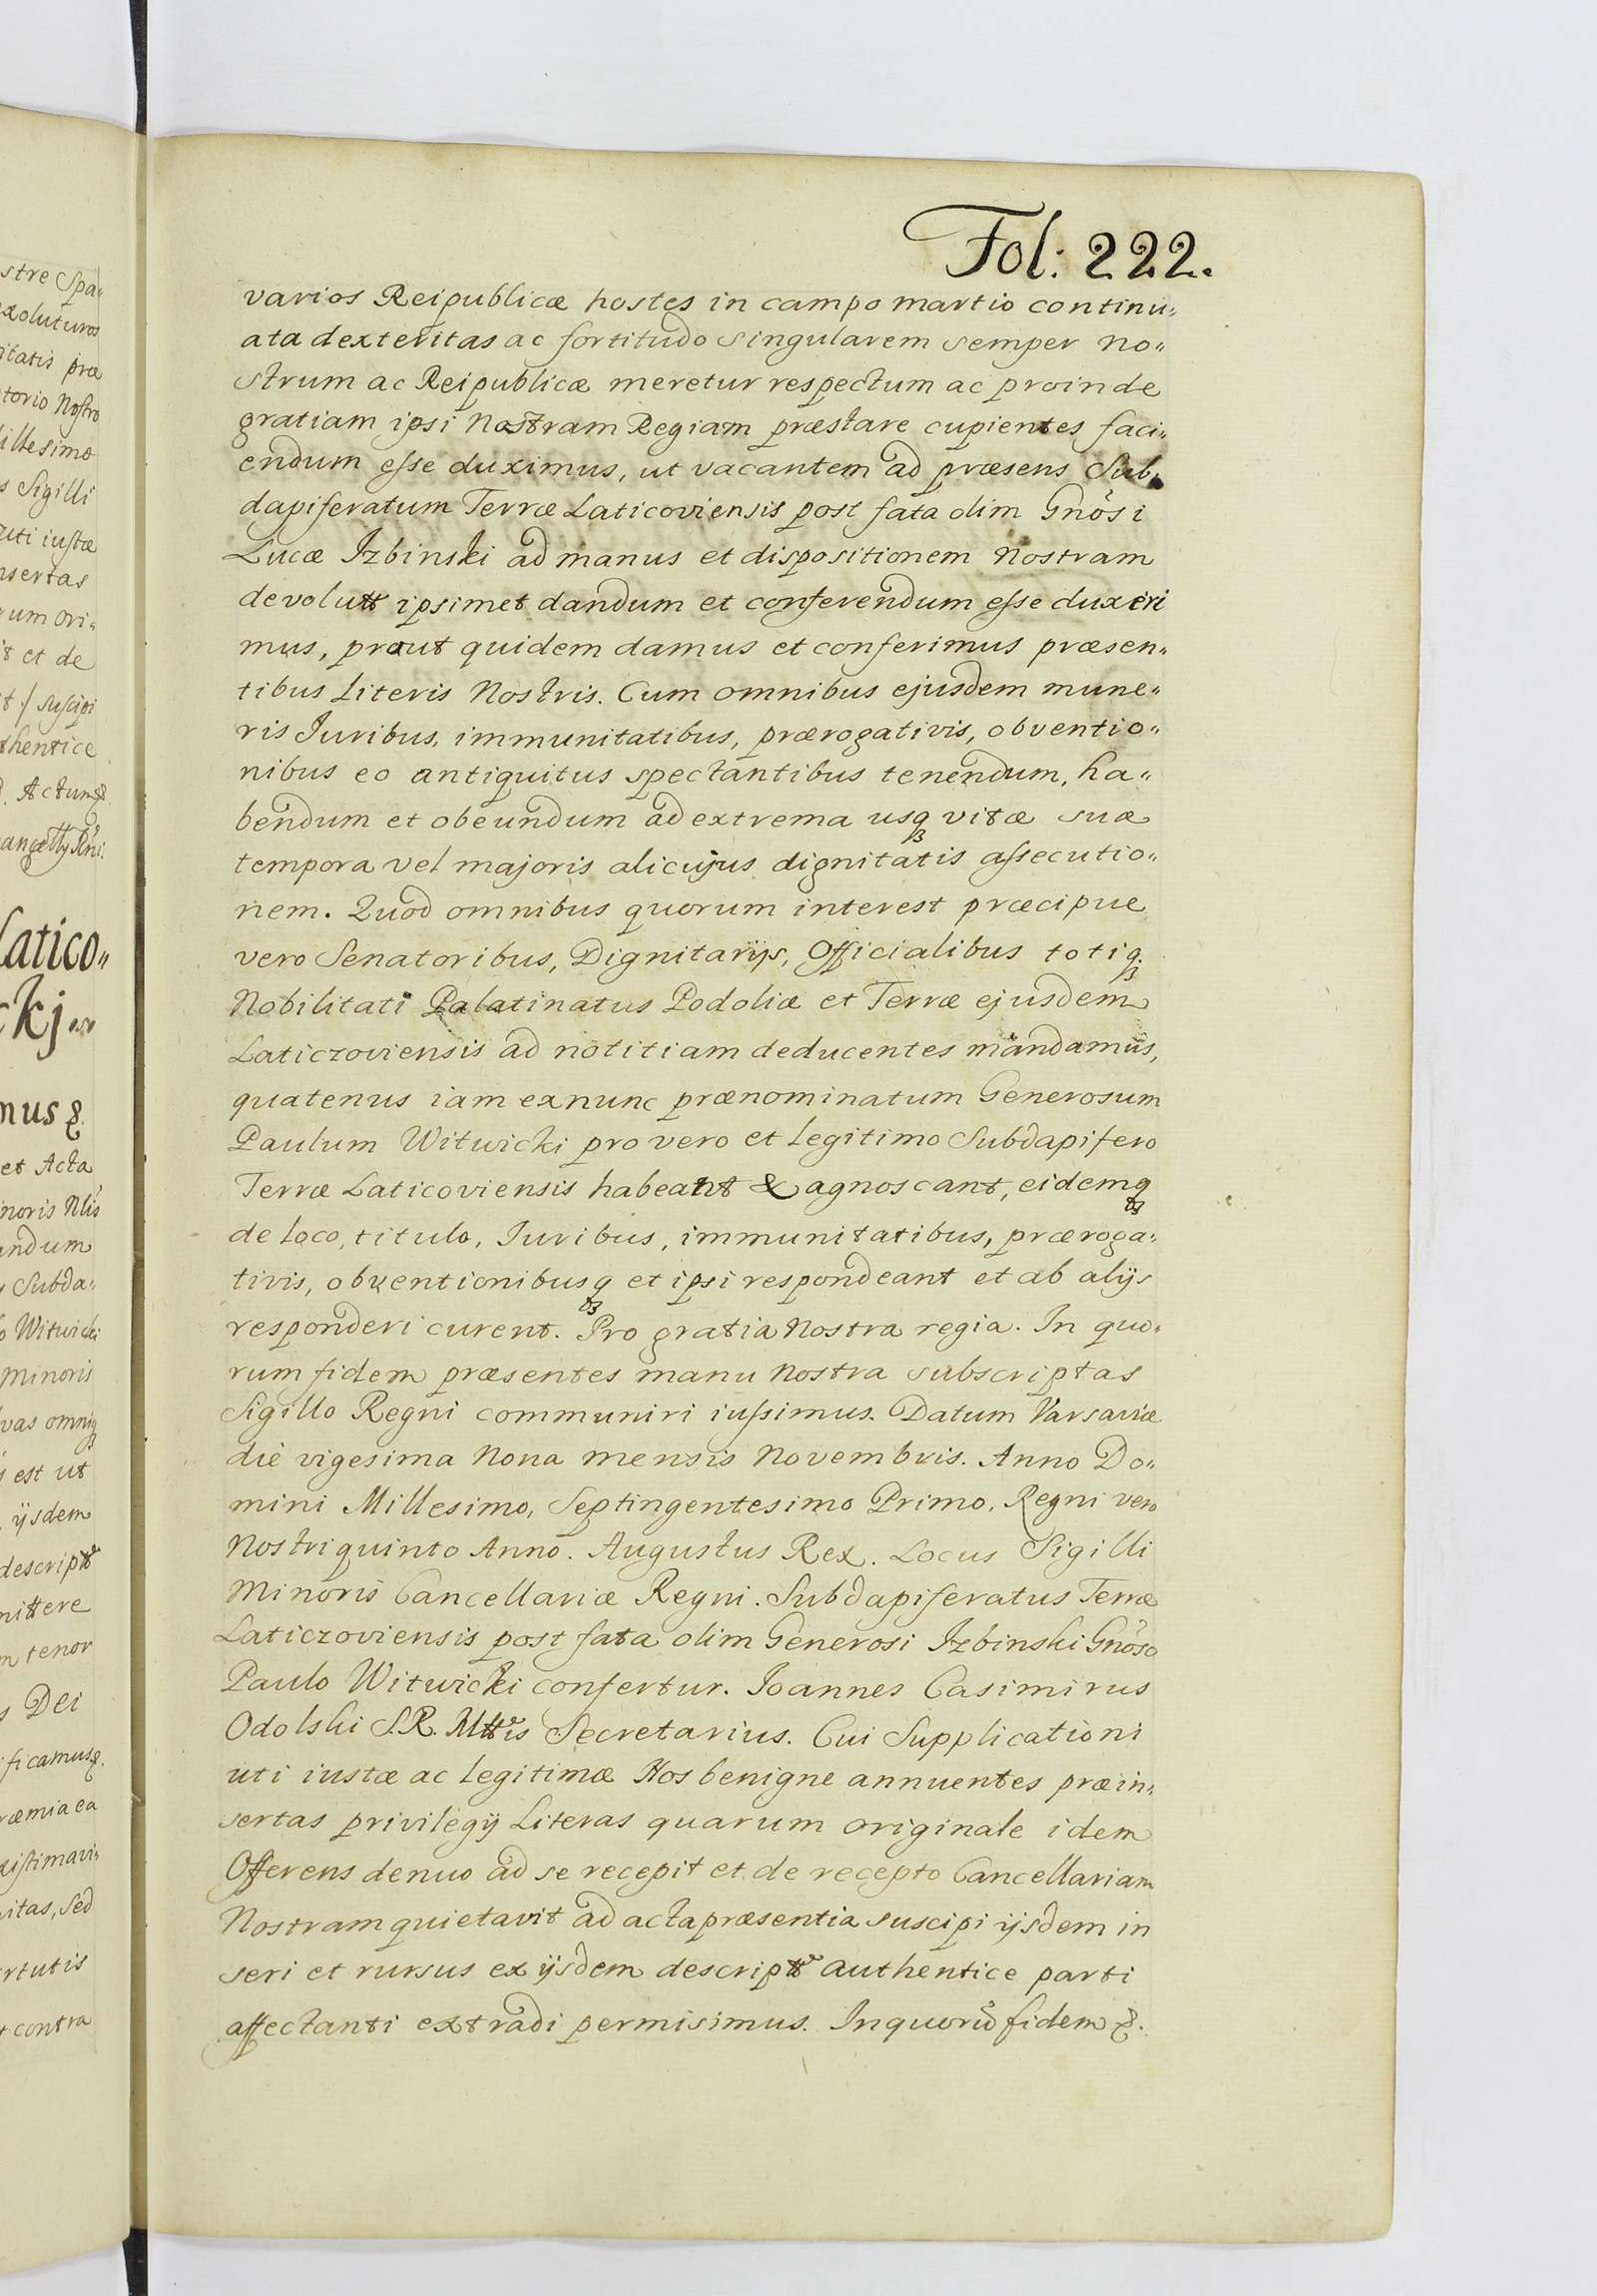 stre Spa„
xoluturos
itatis præ
torio Nostro
illesimo
s Sigilli
uti iustæ
nsertas
um Ori„
t et de
suscipi
thentice
Actum &
Latico„
ckj
mus &
et Acta
noris Nlis
andum
Subda„
o Witwicki
Minoris
vas omniq3
est ut
ijsdem
descriptt
mittere
m tenor
s Dei
ficamus &.
ræmia ea
xistimavi„
itas, Sed
irtutis
t contra
Fol: 222.
varios Reipublicæ hostes in campo martio continu„
ata dexteritas ac fortitudo singularem semper no„
strum ac Reipublicæ meretur respectum ac proinde
gratiam ipsi Nostram Regiam præstare cupientes faci„
endum esse duximus, ut vacantem ad præsens Sub„
dapiferatum Terræ Laticoviensis post fata olim Gnosi
Lucæ Izbinski ad manus et dispositionem Nostram
devolutt ipsimet dandum et conferendum esse duxeri
mus, prout quidem damus et conferimus præsen„
tibus Literis Nostris. Cum omnibus ejusdem mune„
ris Iuribus, immunitatibus, prærogativis, obventio„
nibus eo antiquitus spectantibus tenendum, ha„
bendum et obeundum ad extrema usq3 vitæ suæ
tempora vel majoris alicujus dignitatis assecutio„
nem. Quod omnibus quorum interest præcipue
vero Senatoribus, Dignitarijs, Officialibus totiq3
Nobilitati Palatinatus Podoliæ et Terræ ejusdem
Laticzoviensis ad notitiam deducentes mandamus,
quatenus iam exnunc prænominatum Generosum
Paulum Witwicki pro vero et legitimo Subdapifero
Terræ Laticoviensis habeant & agnoscant, eidemq3
de loco, titulo, Iuribus, immunitatibus, præroga„
tivis, obventionibusq3 et ipsi respondeant et ab alijs
responderi curent. Pro gratia Nostra regia. In quo„
rum fidem præsentes manu Nostra subscriptas
Sigillo Regni communiri iussimus. Datum Varsaviæ
die vigesima Nona mensis Novembris. Anno Do„
mini Millesimo, Septingentesimo Primo, Regni vero
Nostri quinto Anno. Augustus Rex. Locus Sigilli
Minoris Cancellariæ Regni. Subdapiferatus Terræ
Laticzoviensis post fata olim Generosi Izbinski Gnoso
Paulo Witwicki confertur. Ioannes Casimirus
Odolski S.R. Mttis Secretarius. Cui Supplicationi
uti iustæ ac legitimæ Nos benigne annuentes præin„
sertas privilegij Literas quarum originale idem
Offerens denuo ad se recepit et de recepto Cancellariam
Nostram quietavit ad acta præsentia suscipi ijsdem in
seri et rursus ex ijsdem descriptt authentice parti
affectanti extradi permisimus. In quorũ fidem &.